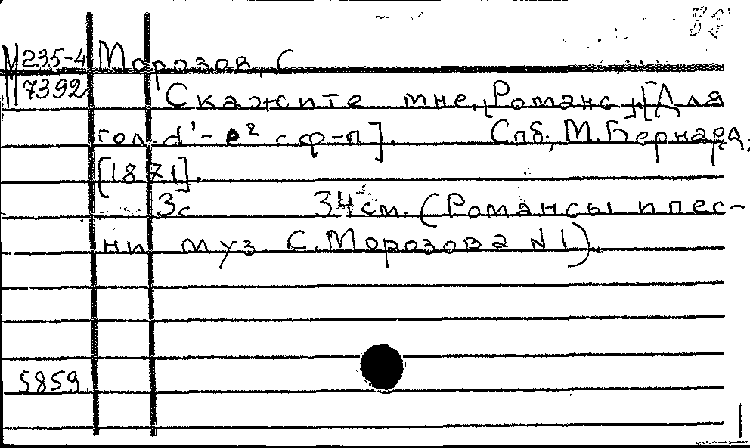 М 235-4 Морозов, С
7392 Скажите мне. [Романс]. [Для
гол. d'-e² с ф-п]. Спб, М. Бернард,
[1871].
3с 34 см. (Романсы и пес-
ни муз. С. Морозова N 1).
5859